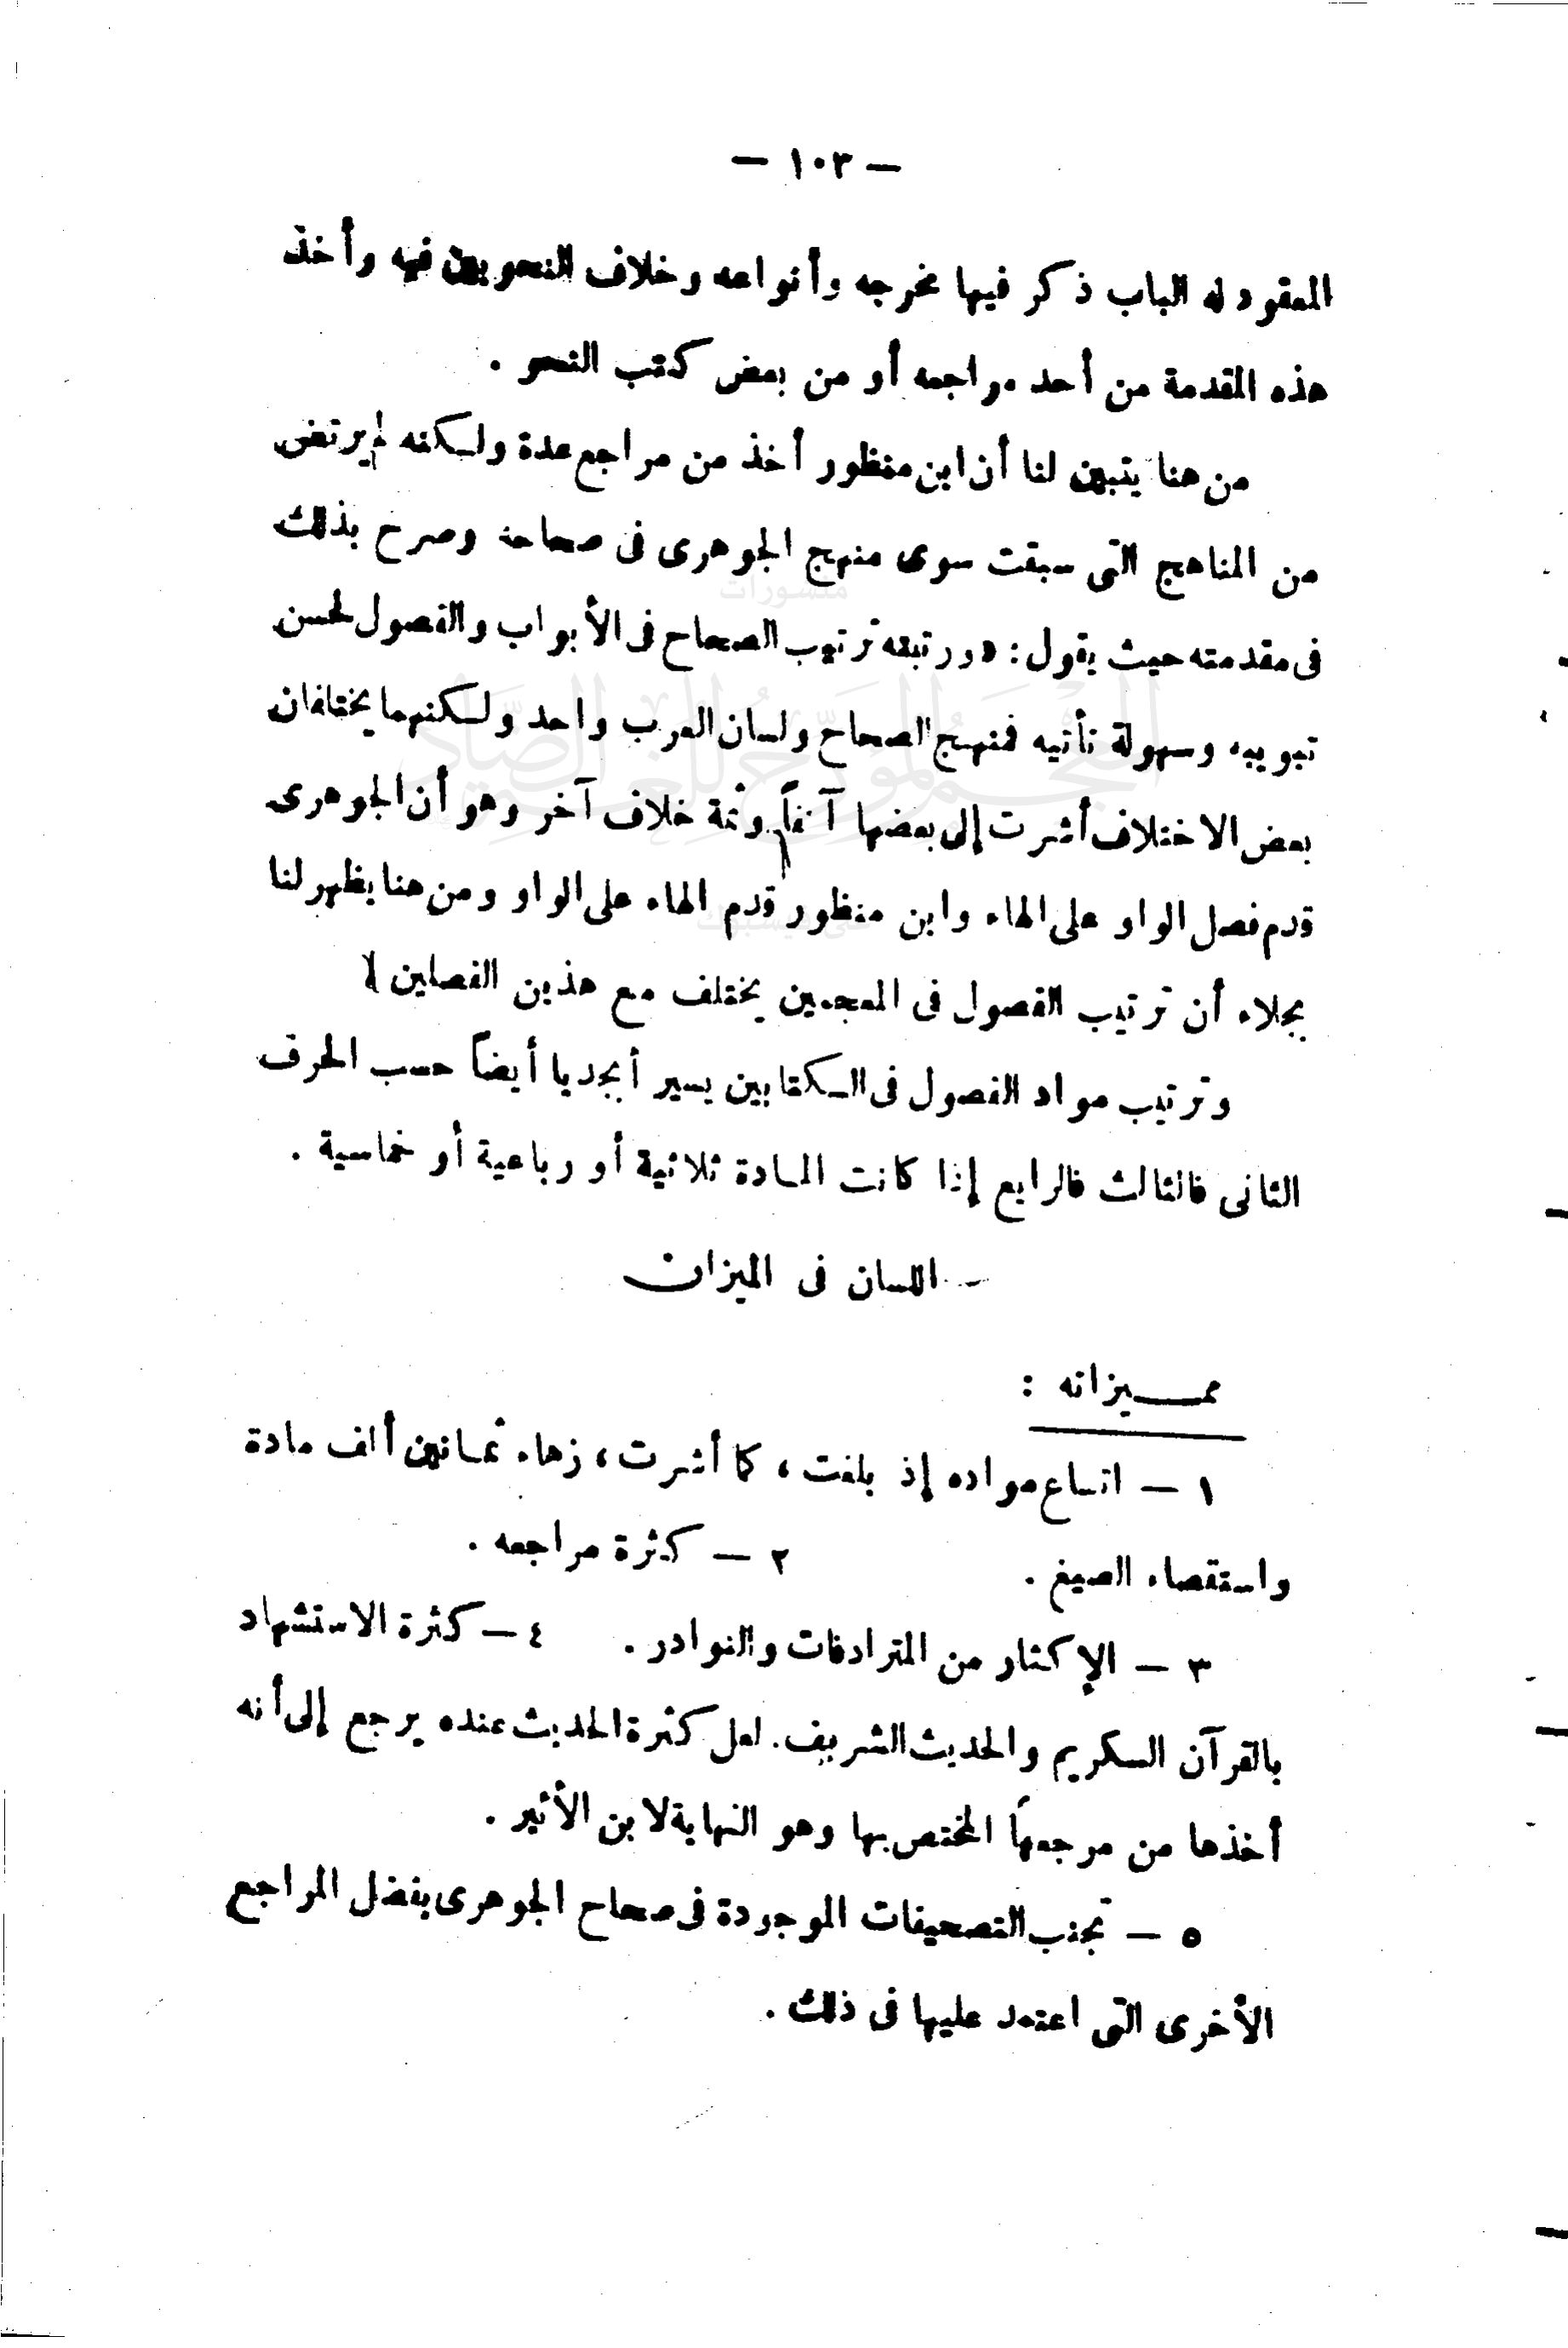 — ١٠٣ —
المعقود له الباب ذكر فيها مخرجه وأنواعه وخلاف النحويين فيه وأخذ
هذه المقدمة من أحد مراجعه أو من بعض كتب النحو .
من هنا يتبين لنا أن ابن منظور أخذ من مراجع عدة ولكنه لم يرتض
من المناهج التى سبقت سوى منهج الجوهرى فى صحاحه وصرح بذلك
فى مقدمته حيث يقول : «ورتبته ترتيب الصحاح فى الأبواب والفصول لحسن
تبويبه وسهولة تأتيه فمنهج الصحاح ولسان العرب واحد ولكنهما يختلفان
بعض الاختلاف أشرت إلى بعضها آنفاً وثمة خلاف آخر وهو أن الجوهرى
قدم فصل الواو على الهاء وابن منظور قدم الهاء على الواو ومن هنا يظهر لنا
بجلاء أن ترتيب الفصول فى المعجمين يختلف مع هذين الفصلين لا
وترتيب مواد الفصول فى الكتابين يسير أبجديا أيضاً حسب الحرف
الثانى فالثالث فالرابع إذا كانت المادة ثلاثية أو رباعية أو خماسية .
اللسان فى الميزان
مميزاته :
١ — اتساع مواده إذ بلغت ، كما أشرت ، زهاء ثمانين ألف مادة
واستقصاء الصيغ . ٢ — كثرة مراجعه .
٣ — الإكثار من المترادفات والنوادر . ٤ — كثرة الاستشهاد
بالقرآن الكريم والحديث الشريف . لعل كثرة الحديث عنده يرجع إلى أنه
أخذها من مرجعها المختص بها وهو النهاية لابن الأثير .
٥ — تجنب التصحيفات الموجودة فى صحاح الجوهرى بفضل المراجع
الأخرى التى اعتمد عليها فى ذلك .
منشورات
المعجم المؤرخ للغة الضاد
على فيسبوك